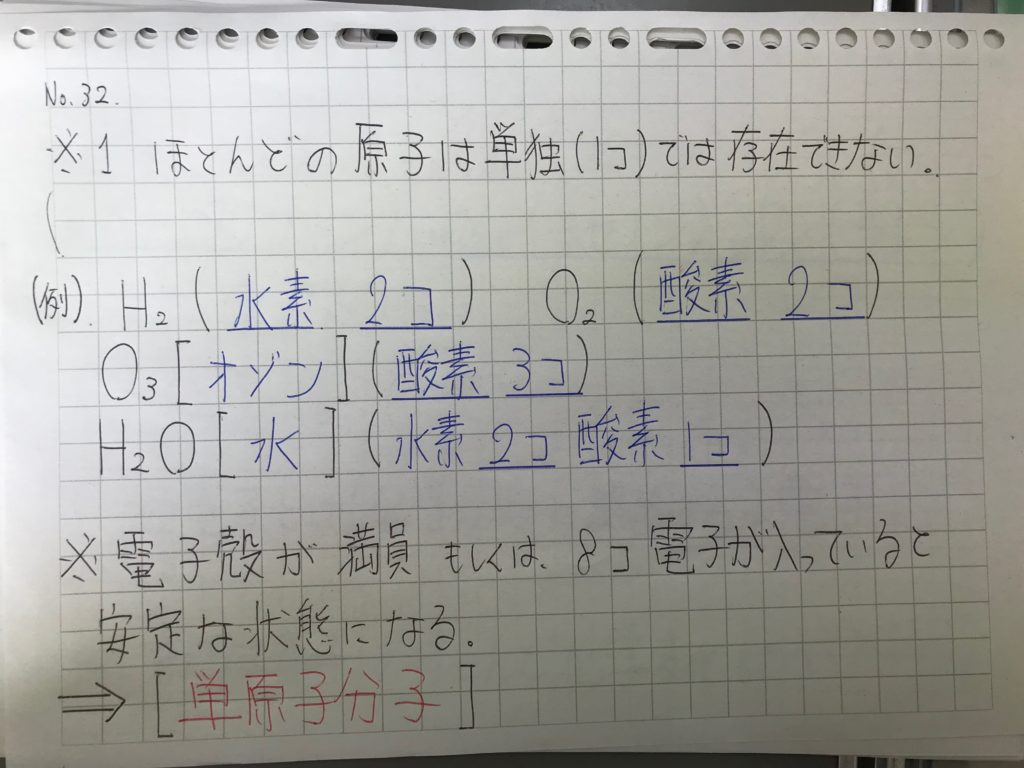 No.32.
※1 ほとんどの原子は単独(1コ)では存在できない。
(
(例). H₂ (水素 2コ) O₂ (酸素 2コ)
O₃ [オゾン] (酸素 3コ)
H₂O [水] (水素 2コ 酸素 1コ)
※電子殻が満員もしくは、8コ電子が入っていると
安定な状態になる.
⇒ [単原子分子]